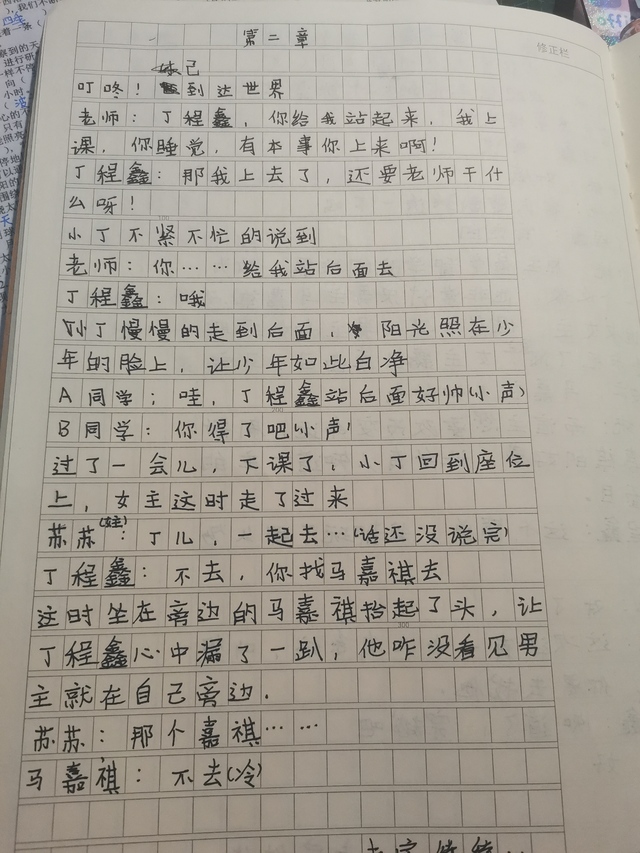 第二章
叮咚！已到达世界
老师：丁程鑫，你给我站起来，我上
课，你睡觉，有本事你上来啊！
丁程鑫：那我上去了，还要老师干什
么呀！
小丁不紧不忙的说到
老师：你……给我站后面去
丁程鑫：哦
小丁慢慢的走到后面，阳光照在少
年的脸上，让少年如此白净
A同学：哇，丁程鑫站后面好帅（小声）
B同学：你得了吧（小声）
过了一会儿，下课了，小丁回到座位
上，女主这时走了过来
苏苏（女主）：丁儿，一起去…（话还没说完）
丁程鑫：不去，你找马嘉祺去
这时坐在旁边的马嘉祺抬起了头，让
丁程鑫心中漏了一趴，他咋没看见男
主就在自己旁边.
苏苏：那个嘉祺……
马嘉祺：不去（冷）
修正栏